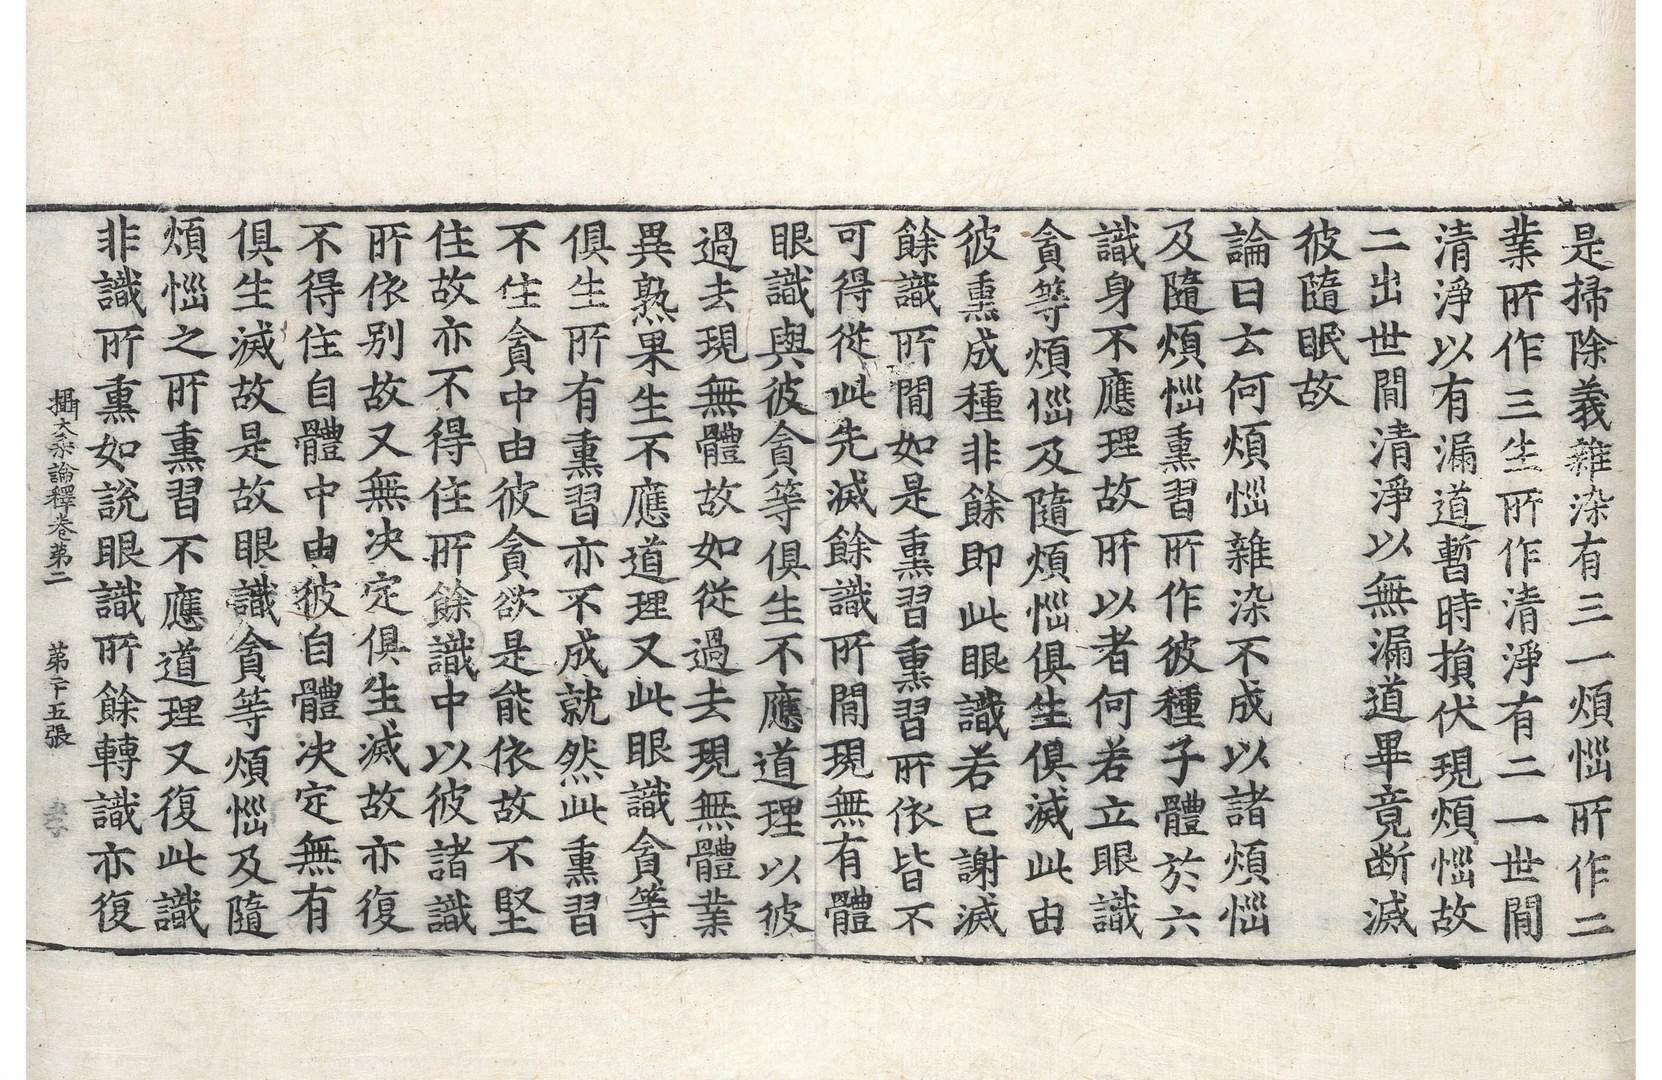 是掃除義雜染有三一煩惱所作二
業所作三生所作清淨有二一世間
清淨以有漏道暫時損伏現煩惱故
二出世間清淨以無漏道畢竟断滅
彼隨眠故
論曰云何煩惱雜染不成以諸煩惱
及隨煩惱熏習所作彼種子體於六
識身不應理故所以者何若立眼識
貪等煩惱及隨煩惱俱生俱滅此由
彼熏成種非餘即此眼識若已謝滅
餘識所間如是熏習熏習所依皆不
可得從此先滅餘識所間現無有體
眼識與彼貪等俱生不應道理以彼
過去現無體故如從過去現無體業
異熟果生不應道理又此眼識貪等
俱生所有熏習亦不成就然此熏習
不住貪中由彼貪欲是能依故不堅
住故亦不得住所餘識中以彼諸識
所依别故又無决定俱生滅故亦復
不得住自體中由彼自體决定無有
俱生滅故是故眼識貪等煩惱及隨
煩惱之所熏習不應道理又復此識
非識所熏如說眼識所餘轉識亦復
攝大乘論釋卷第二　第二十五張